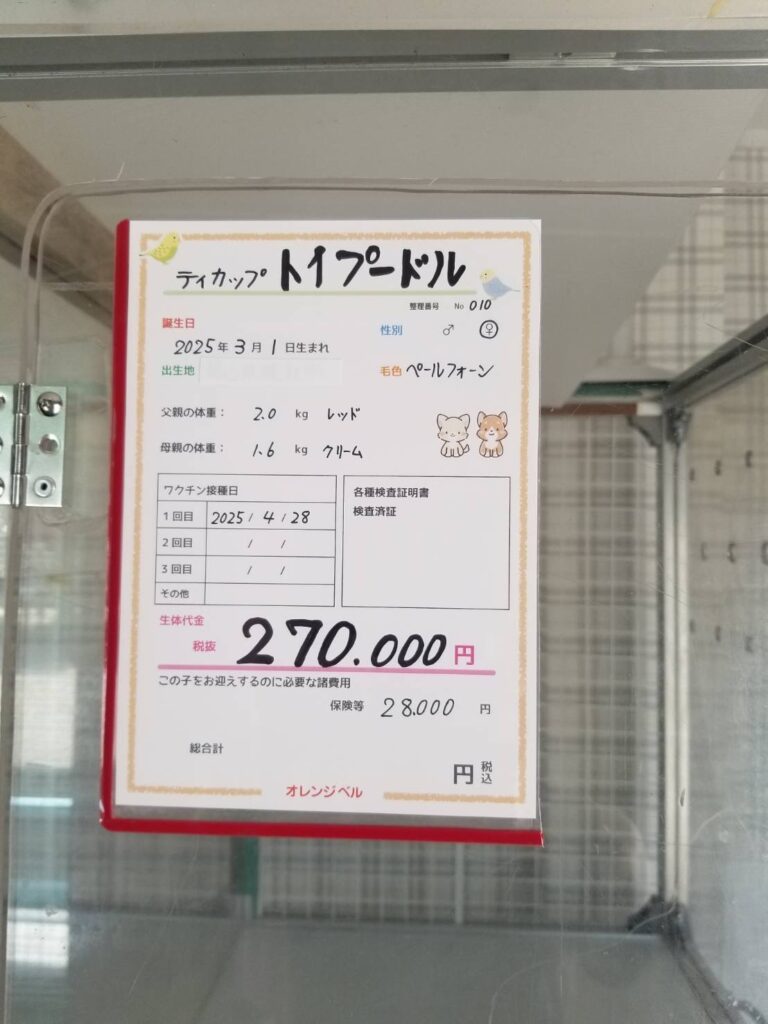 ティカップ トイプードル
整理番号 No 010
誕生日
性別 ♂ ♀
2025年3月1日生まれ
出生地
毛色 ペールフォーン
父親の体重： 2.0 kg レッド
母親の体重： 1.6 kg クリーム
ワクチン接種日
1回目 2025 / 4 / 28
2回目 / /
3回目 / /
その他
各種検査証明書
検査済証
生体代金
税抜 270.000円
この子をお迎えするのに必要な諸費用
保険等 28.000 円
総合計
円 税込
オレンジベル